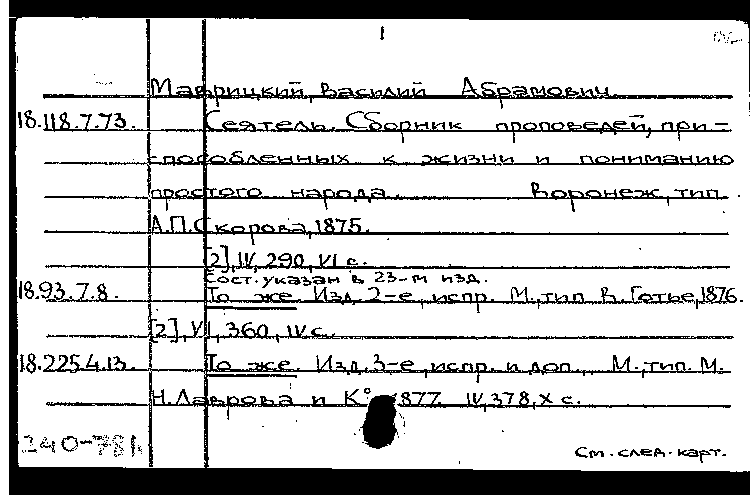 1
Маврицкий, Василий Абрамович.
18.118.7.73. Сеятель. Сборник проповедей, при-
способленных к жизни и пониманию
простого народа. Воронеж, тип.
А.П.Скорова, 1875.
[2], IV, 290, VI с.
Сост. указан в 23-м изд.
18.93.7.8. То же. Изд. 2-е, испр. М., тип. В. Готье, 1876.
[2], VI, 360, IV с.
18.225.4.13. То же. Изд. 3-е, испр. и доп. М., тип. М.
Н. Лаврова и К° 1877. IV, 378, X с.
240-78
См. след. карт.